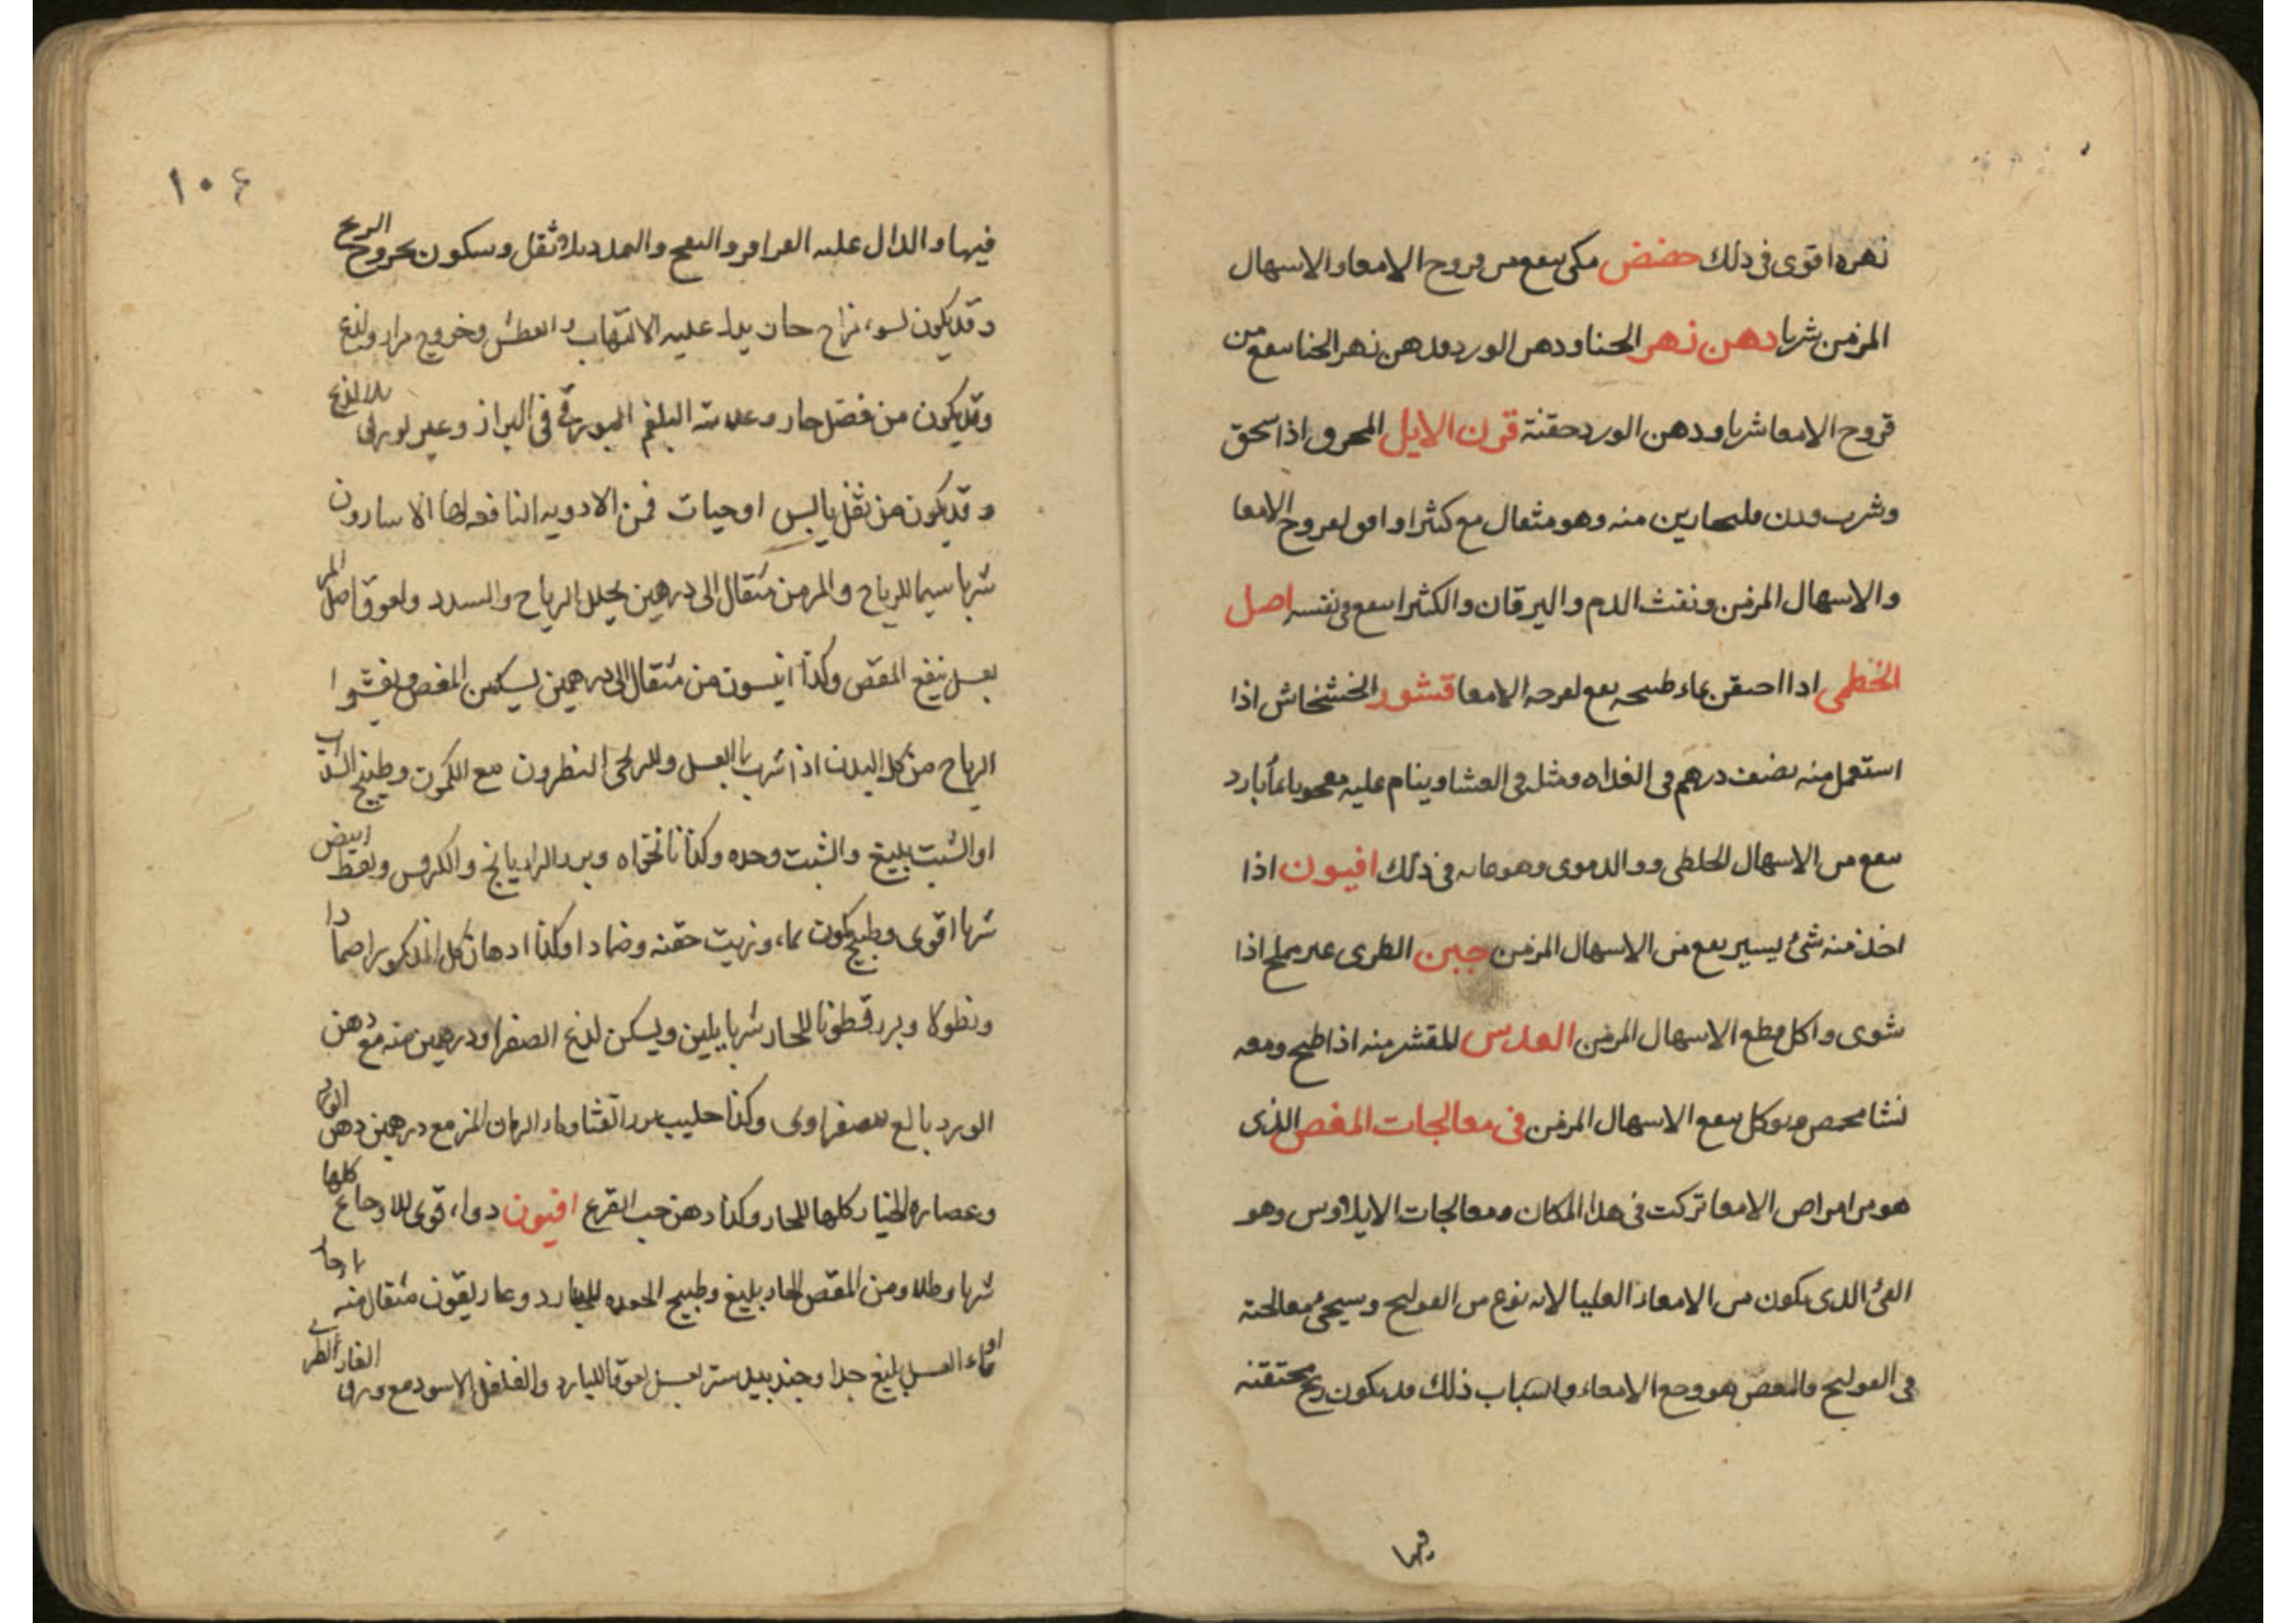 زهره اقوى فى ذلك حضض مكى ينفع من قروح الامعا والاسهال
المزمن شربا دهن زهر الحنا ودهن الورد ودهن زهر الحنا ينفع من
قروح الامعا شربا ودهن الورد حقنة قرن الايل المحرق اذا سحق
وشرب منه وهو مثقال مع كثيرا وافق لقروح الامعا
والاسهال المزمن ونفث الدم واليرقان والكثيرا ينفع فى نفسه اصل
الخطمى اذا احتقن بماء طبيخه نفع لقرحه الامعا قشور الخشخاش اذا
استعمل منه نصف درهم فى الغداه ومثله فى العشا وينام عليه بماء بارد
ينفع من الاسهال الخلطى والدموى وهو غايه فى ذلك افيون اذا
اخذ منه شئ يسير نفع من الاسهال المزمن جبن الطرى غير مملح اذا
شوى واكل قطع الاسهال المزمن العدس المقشر منه اذا طبخ ومعه
نشا محمص ويوكل ينفع الاسهال المزمن فى معالجات المغص الذى
هو من امراض الامعا تركت فى هذا المكان ومعالجات الايلاوس وهو
القئ الذى يكون من الامعاء العليا لانه نوع من القولنج وسيجئ معالجته
فى القولنج والمغص هو وجع الامعاء واسباب ذلك قد يكون ريح محتقنه
فيها
١٠٤
فيها والدال عليه القراقر والنفخ والتمدد بلا ثقل وسكون بخروج الريح
وقد يكون لسوء مزاج حار يدل عليه الالتهاب والعطش وخروج مرار ولذع
وقد يكون من فضل حار وعلامته البلغم البورقى فى البراز وغير بورقى بلا لذع
وقد يكون من ثفل يابس او حيات فمن الادويه النافعه لها الاسارون
شربا سيما للرياح والمزمن مثقال الى درهمين يحلل الرياح والسدد ولعوق اصل المر
بعسل ينفع المغص وكذا انيسون من مثقال الى درهمين يسكن المغص ويفشوا
الرياح من كل البدن اذا شرب بالعسل وللريحى النطرون مع الكمون وطبيخ السذاب
او الشبت بليغ والشبت وحده وكذا نانخواه وبزر الرازيانج والكرفس ونفط ابيض
شربا اقوى وطبيخ كمون بماء وزيت حقنه وضمادا وكذا ادهان كل المذكور اضمادا
ونطولا وبزر قطونا للحار شربا يلين ويسكن لذع الصفرا ودرهمين منه مع دهن
الورد بالغ للصفراوى وكذا حليب بزر القثا وماء الرمان المز مع درهمين دهن الورد
وعصاره الخيار كلها للحار وكذا دهن حب القرع افيون دواء قوى للاوجاع كلها
شربا وطلا ومن المغص الحاد بليغ وطبيخ للبارد وغاريقون مثقال منه
او بماء العسل بليغ جدا وجندبيدستر بعسل لعوقا للبارد والفلفل الاسود مع ورق الغار الطرى